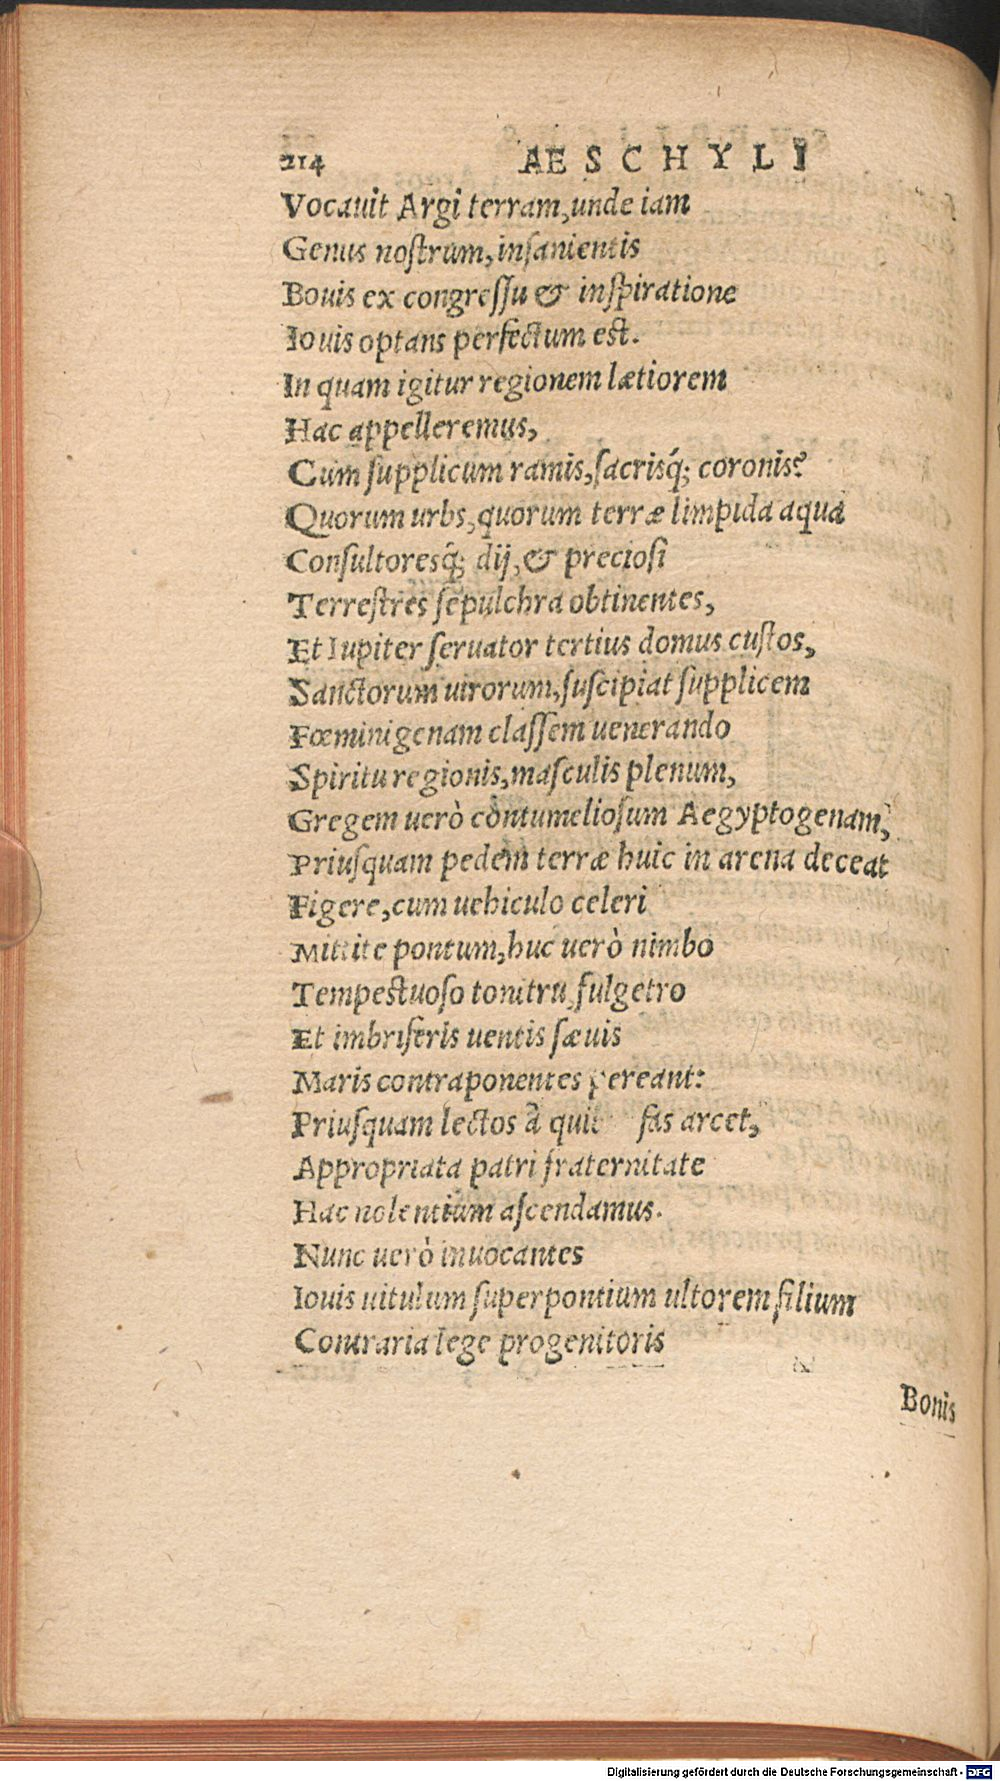 214 AESCHYLI
Vocauit Argi terram, unde iam
Genus nostrum, insanientis
Bouis ex congressu & inspiratione
Iouis optans perfectum est.
In quam igitur regionem lætiorem
Hac appelleremus,
Cum supplicum ramis, sacrisq́; coronis?
Quorum urbs, quorum terræ limpida aqua
Consultoresq́; dij, & preciosi
Terrestres sepulchra obtinentes,
Et Iupiter seruator tertius domus custos,
Sanctorum uirorum, suscipiat supplicem
Fœminigenam classem uenerando
Spiritu regionis, masculis plenum,
Gregem uerò contumeliosum Aegyptogenam,
Priusquam pedem terræ huic in arena deceat
Figere, cum uehiculo celeri
Mittite pontum, huc uerò nimbo
Tempestuoso tonitru, fulgetro
Et imbriferis uentis sæuis
Maris contraponentes pereant:
Priusquam lectos à fas arcet,
Appropriata patri fraternitate
Hac nolentium ascendamus.
Nunc uerò inuocantes
Iouis uitulum superpontium ultorem filium
Contraria lege progenitoris
Bonis
Digitalisierung gefördert durch die Deutsche Forschungsgemeinschaft - DFG